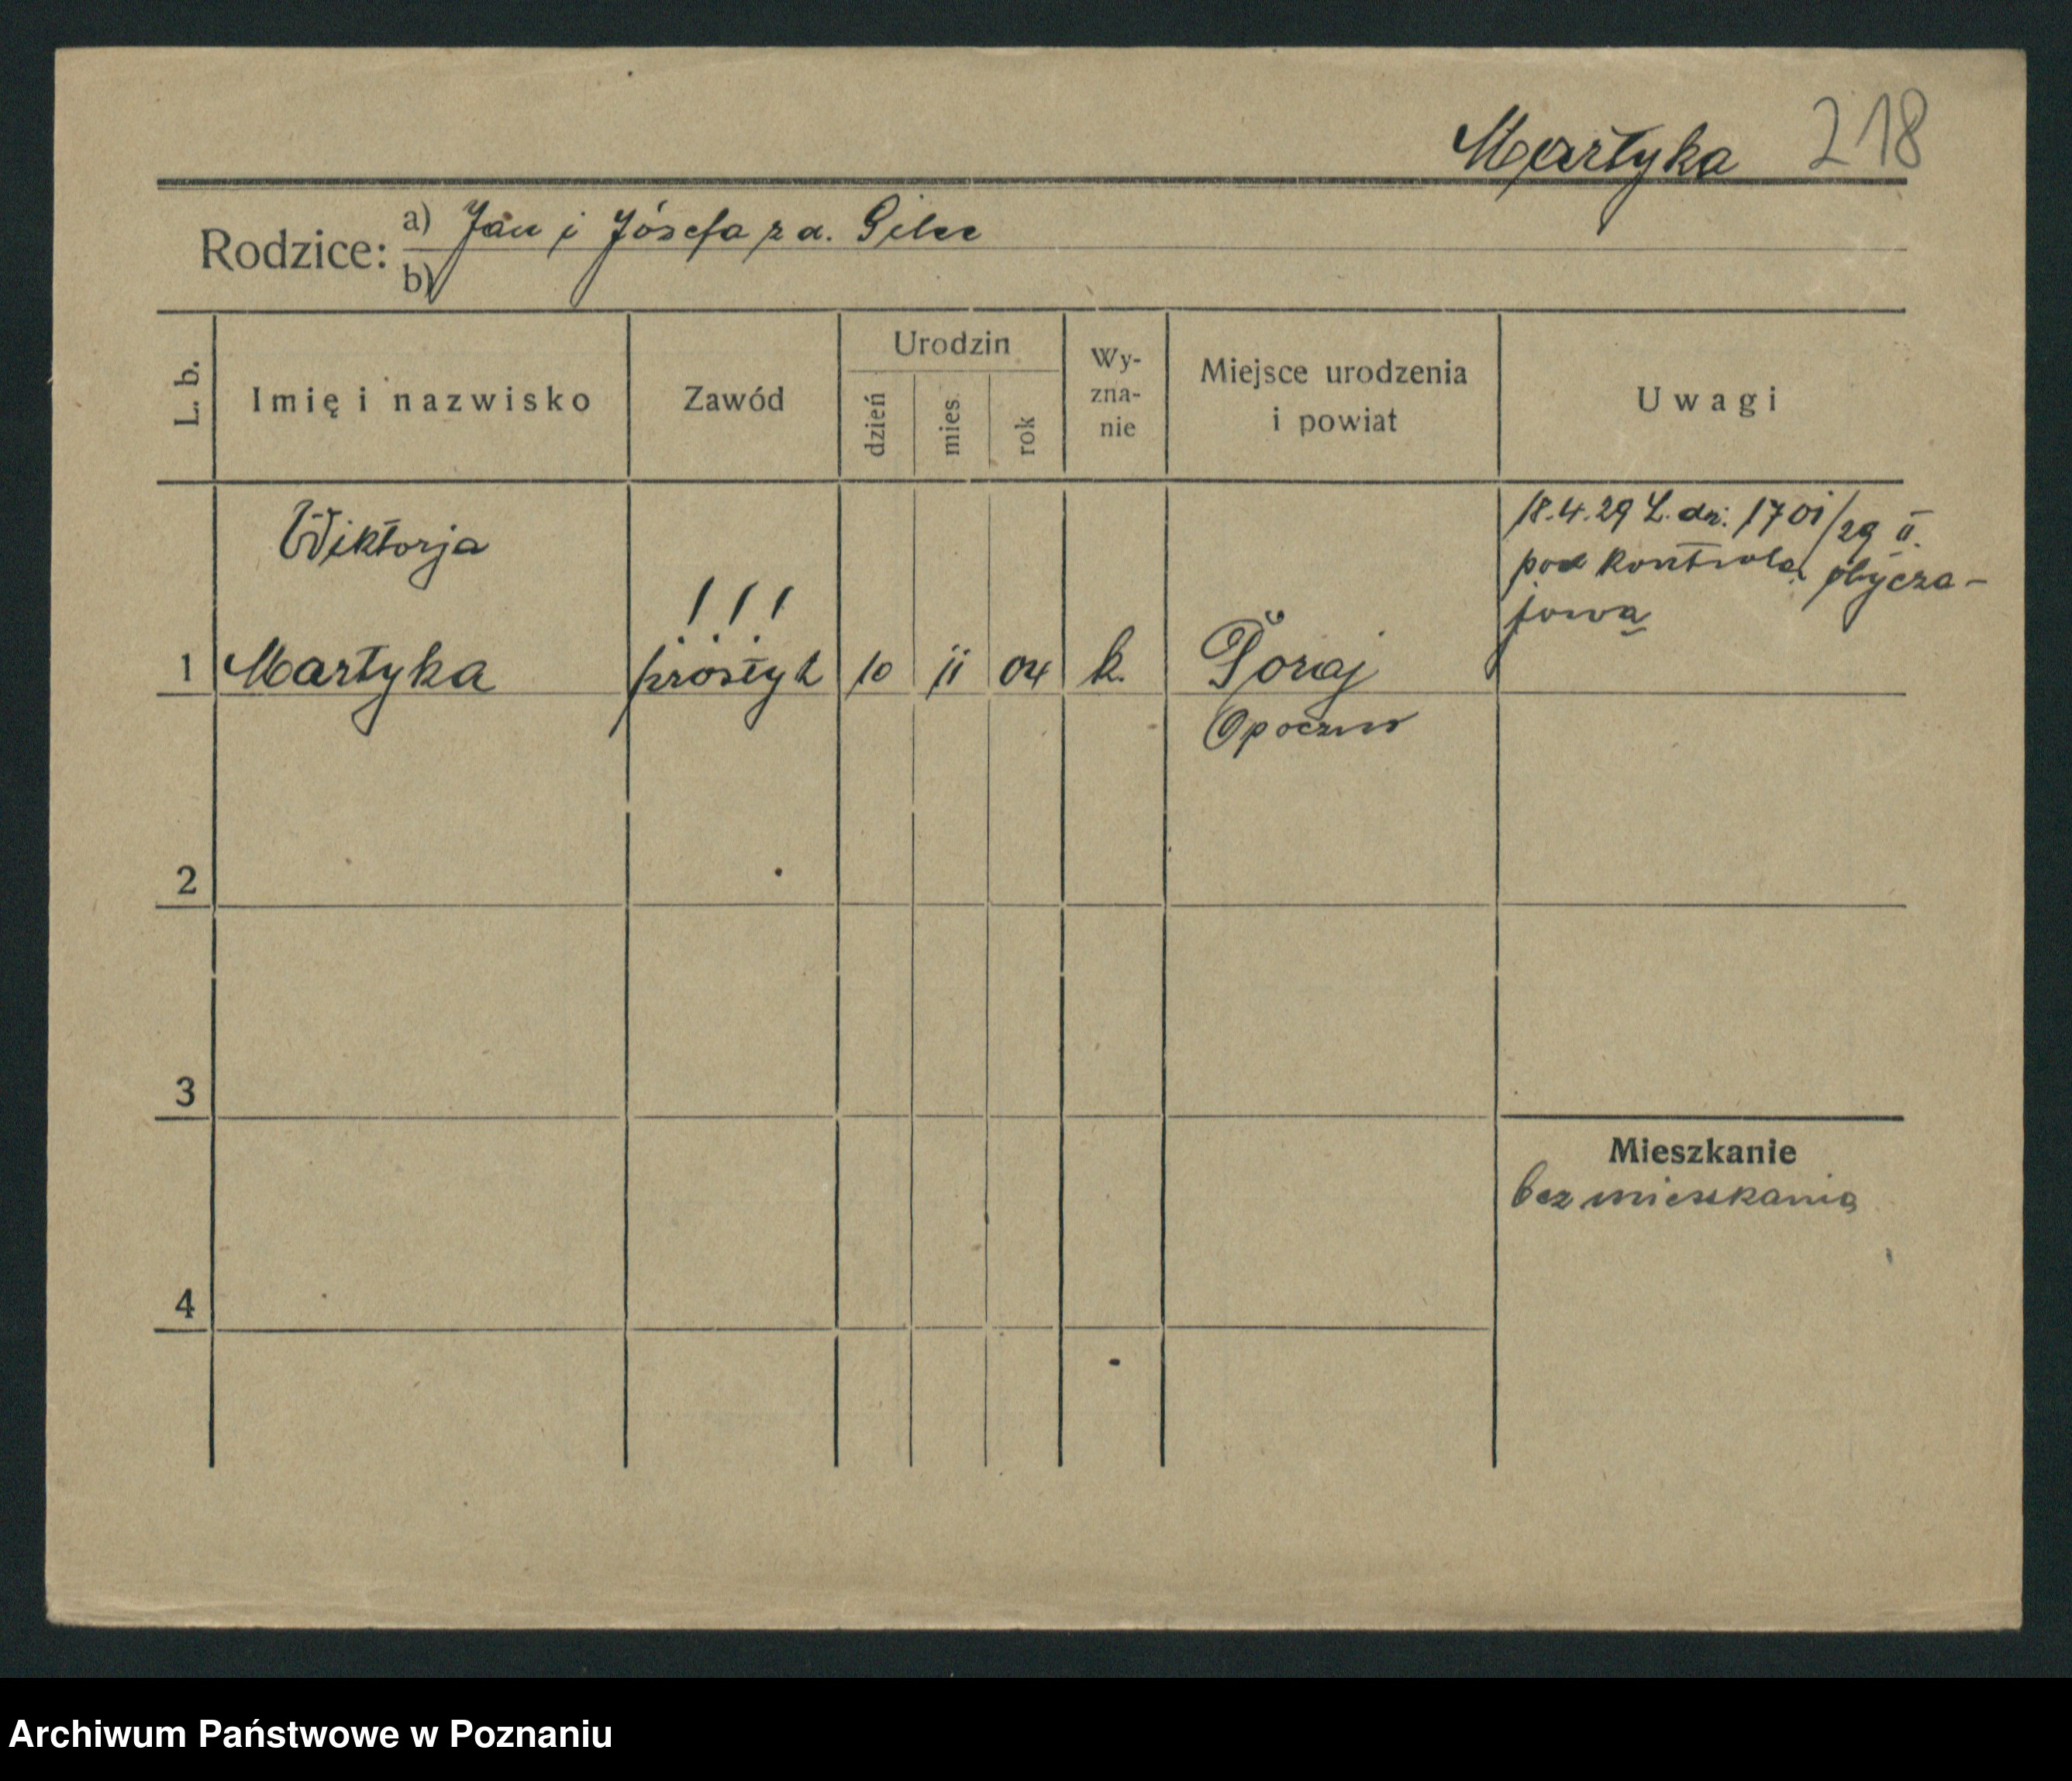 Martyka 218
Rodzice:
a) Jan i Józefa z d.
b)
L. b.
Imię i nazwisko
Zawód
Urodzin
dzień
mies.
rok
Wy-
zna-
nie
Miejsce urodzenia
i powiat
Uwagi
Wiktorja
1 Martyka
! ! !
prostyt
10 11 04 k.
Poraj
Opoczno
18.4.29 L. dz. 1701/29 II.
pod kontrolą obycza-
jową
2
3
4
Mieszkanie
bez mieszkania
Archiwum Państwowe w Poznaniu